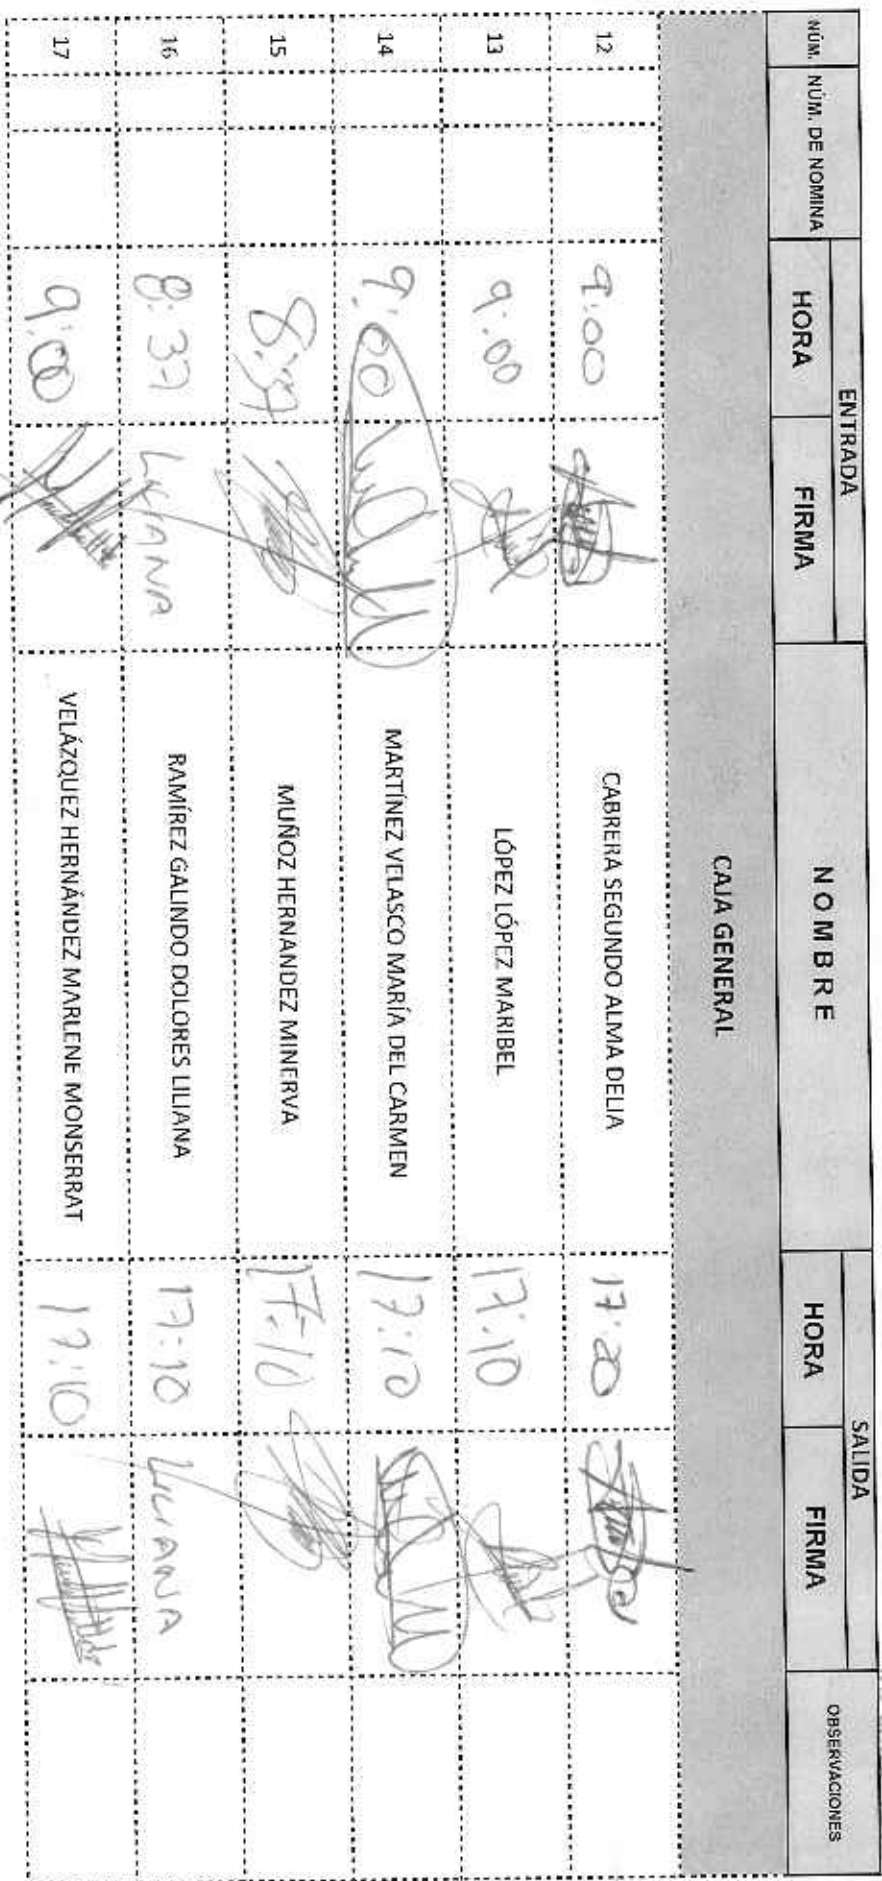 NÚM. NÚM. DE NOMINA ENTRADA NOMBRE SALIDA OBSERVACIONES
HORA FIRMA HORA FIRMA
CAJA GENERAL
12 9:00 CABRERA SEGUNDO ALMA DELIA 17:20
13 9:00 LÓPEZ LÓPEZ MARIBEL 17:10
14 9:00 MARTÍNEZ VELASCO MARÍA DEL CARMEN 17:10
15 8:37 MUÑOZ HERNANDEZ MINERVA 17:10
16 8:37 LILIANA RAMÍREZ GALINDO DOLORES LILIANA 17:10 LILIANA
17 9:00 VELÁZQUEZ HERNÁNDEZ MARLENE MONSERRAT 17:10